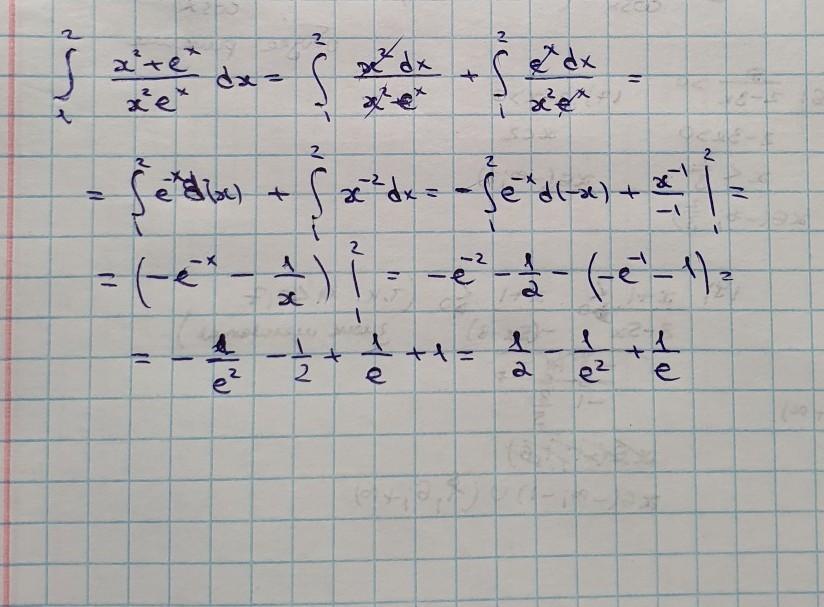 ∫₁² (x² + eˣ)/(x²eˣ) dx = ∫₁² x² dx/(x² eˣ) + ∫₁² eˣ dx/(x² eˣ) =
= ∫₁² e⁻ˣ d(x) + ∫₁² x⁻² dx = - ∫₁² e⁻ˣ d(-x) + x⁻¹/-1 |₁² =
= (-e⁻ˣ - 1/x) |₁² = -e⁻² - 1/2 - (-e⁻¹ - 1) =
= - 1/e² - 1/2 + 1/e + 1 = 1/2 - 1/e² + 1/e